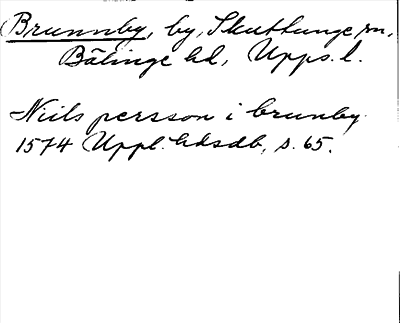 Brunnby, by, Skuttunge sn,
Bälinge hd, Upps. l.
Niils persson i brunby
1574 Uppl. hdsdb, s. 65.